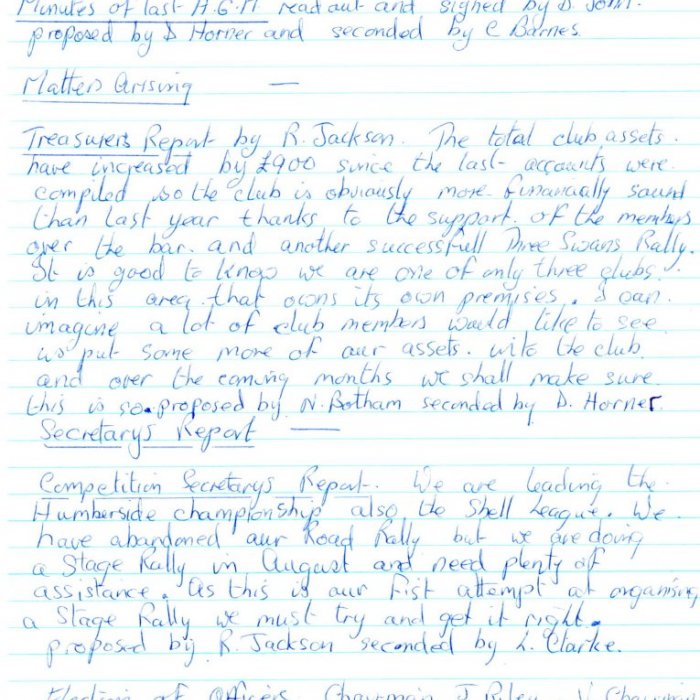 Minutes of last A.G.M read out and signed by D. John.
proposed by D Horner and seconded by C Barnes
Matters Arising —
Treasurers Report by R. Jackson. The total club assets.
have increased by £900 since the last accounts were.
compiled so the club is obviously more financially sound
than last year thanks to the support. of the members
over the bar. and another successfull Three Swans Rally.
It is good to know we are one of only three clubs.
in this area that owns its own premises. I can.
imagine a lot of club members would like to see
us put some more of our assets. into the club
and over the coming months we shall make sure.
this is so. proposed by N. Botham seconded by D. Horner.
Secretarys Report —
Competition Secretarys Report. We are leading the
Humberside championship also the Shell League. We
have abandoned our Road Rally but we are doing
a Stage Rally in August and need plenty of
assistance. As this is our fist attempt at organising
a Stage Rally we must try and get it right.
proposed by R. Jackson seconded by L. Clarke.
Election of Officers Chairman J Riley V Chairman